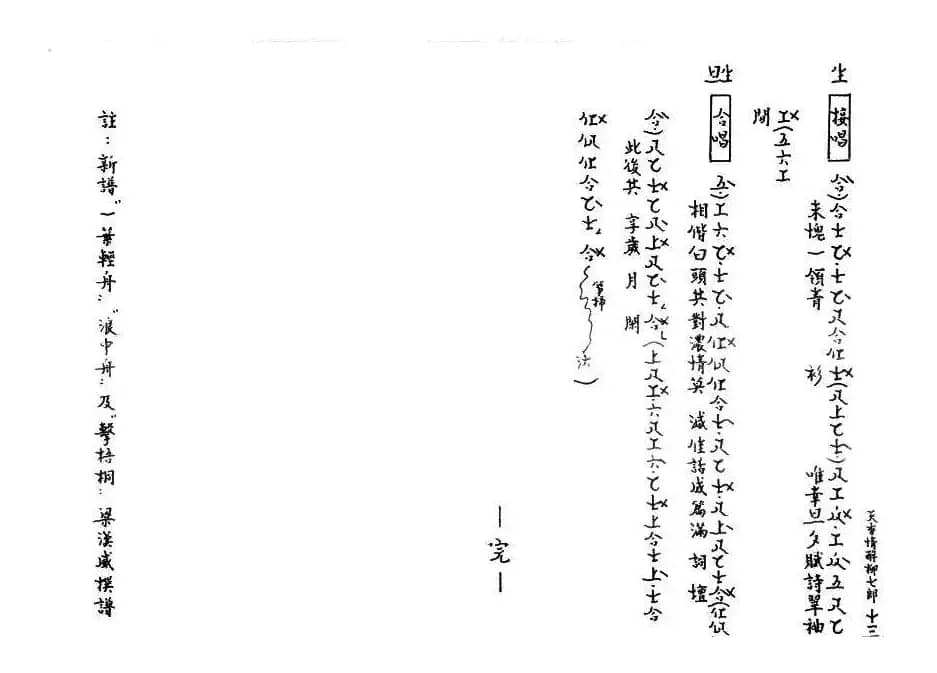 天音情醉柳七郎 十三
生 接唱 合)合士乙士乙尺合仕士(尺上乙士)尺工六工六五尺乙
未愧一領青 衫 唯幸旦夕賦詩翠袖
工(五六工
閒
生旦 合唱 五)工六乙士乙尺仕伬仕合士尺乙士尺上尺乙士合(仕伬
相偕白頭共對濃情莫 減佳話成篇滿 詞 壇
合)尺乙士乙尺上尺乙士合(上尺工六尺工六乙士上合士上士合
此後共 享歲 月 閑
仕伬仕合乙士合
完
註:新譜"一葉輕舟""浪中舟"及"擊梧桐":梁漢威撰譜